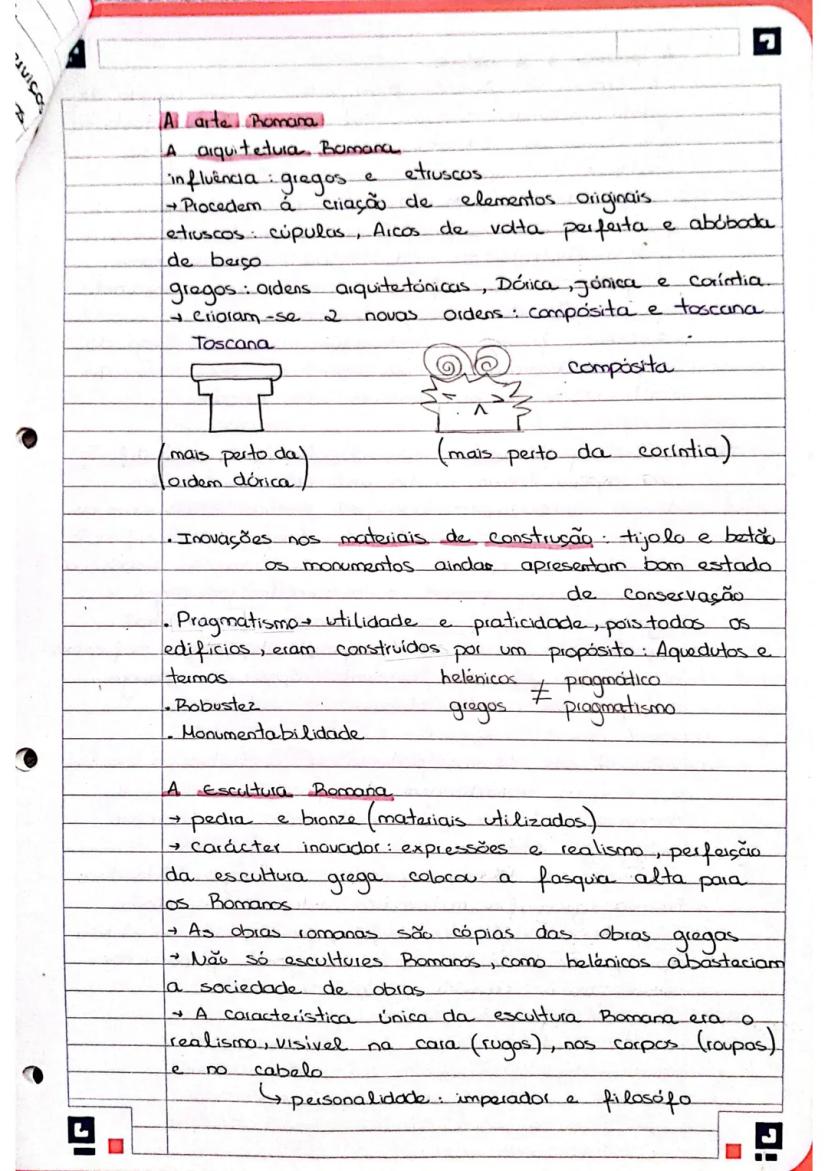 A arte Romana
A arquitetura Romana
influência : gregos e etruscos
→ Procedem á criação de elementos originais
etruscos : cúpulas , Arcos de volta perfeita e abóboda
de berço
gregos : ordens arquitetónicas , Dórica , jónica e coríntia.
→ Criaram-se 2 novas ordens : compósita e toscana
Toscana
compósita
(mais perto da
ordem dórica)
(mais perto da coríntia)
. Inovações nos materiais de construção : tijolo e betão
os monumentos aindas apresentam bom estado
de conservação
. Pragmatismo → utilidade e praticidade , pois todos os
edifícios , eram construídos por um propósito : Aquedutos e
termas
helénicos ≠ pragmático
gregos pragmatismo
. Robustez
. Monumentabilidade
A Escultura Romana
→ pedra e bronze (materiais utilizados)
→ carácter inovador : expressões e realismo , perfeição
da escultura grega colocou a fasquia alta para
os Romanos
→ As obras romanas são cópias das obras gregas
→ Não só escultures Romanos , como helénicos abasteciam
a sociedade de obras
→ A característica única da escultura Romana era o
realismo , visível na cara (rugas) , nos corpos (roupas)
e no cabelo
↳ personalidade : imperador e filosófo